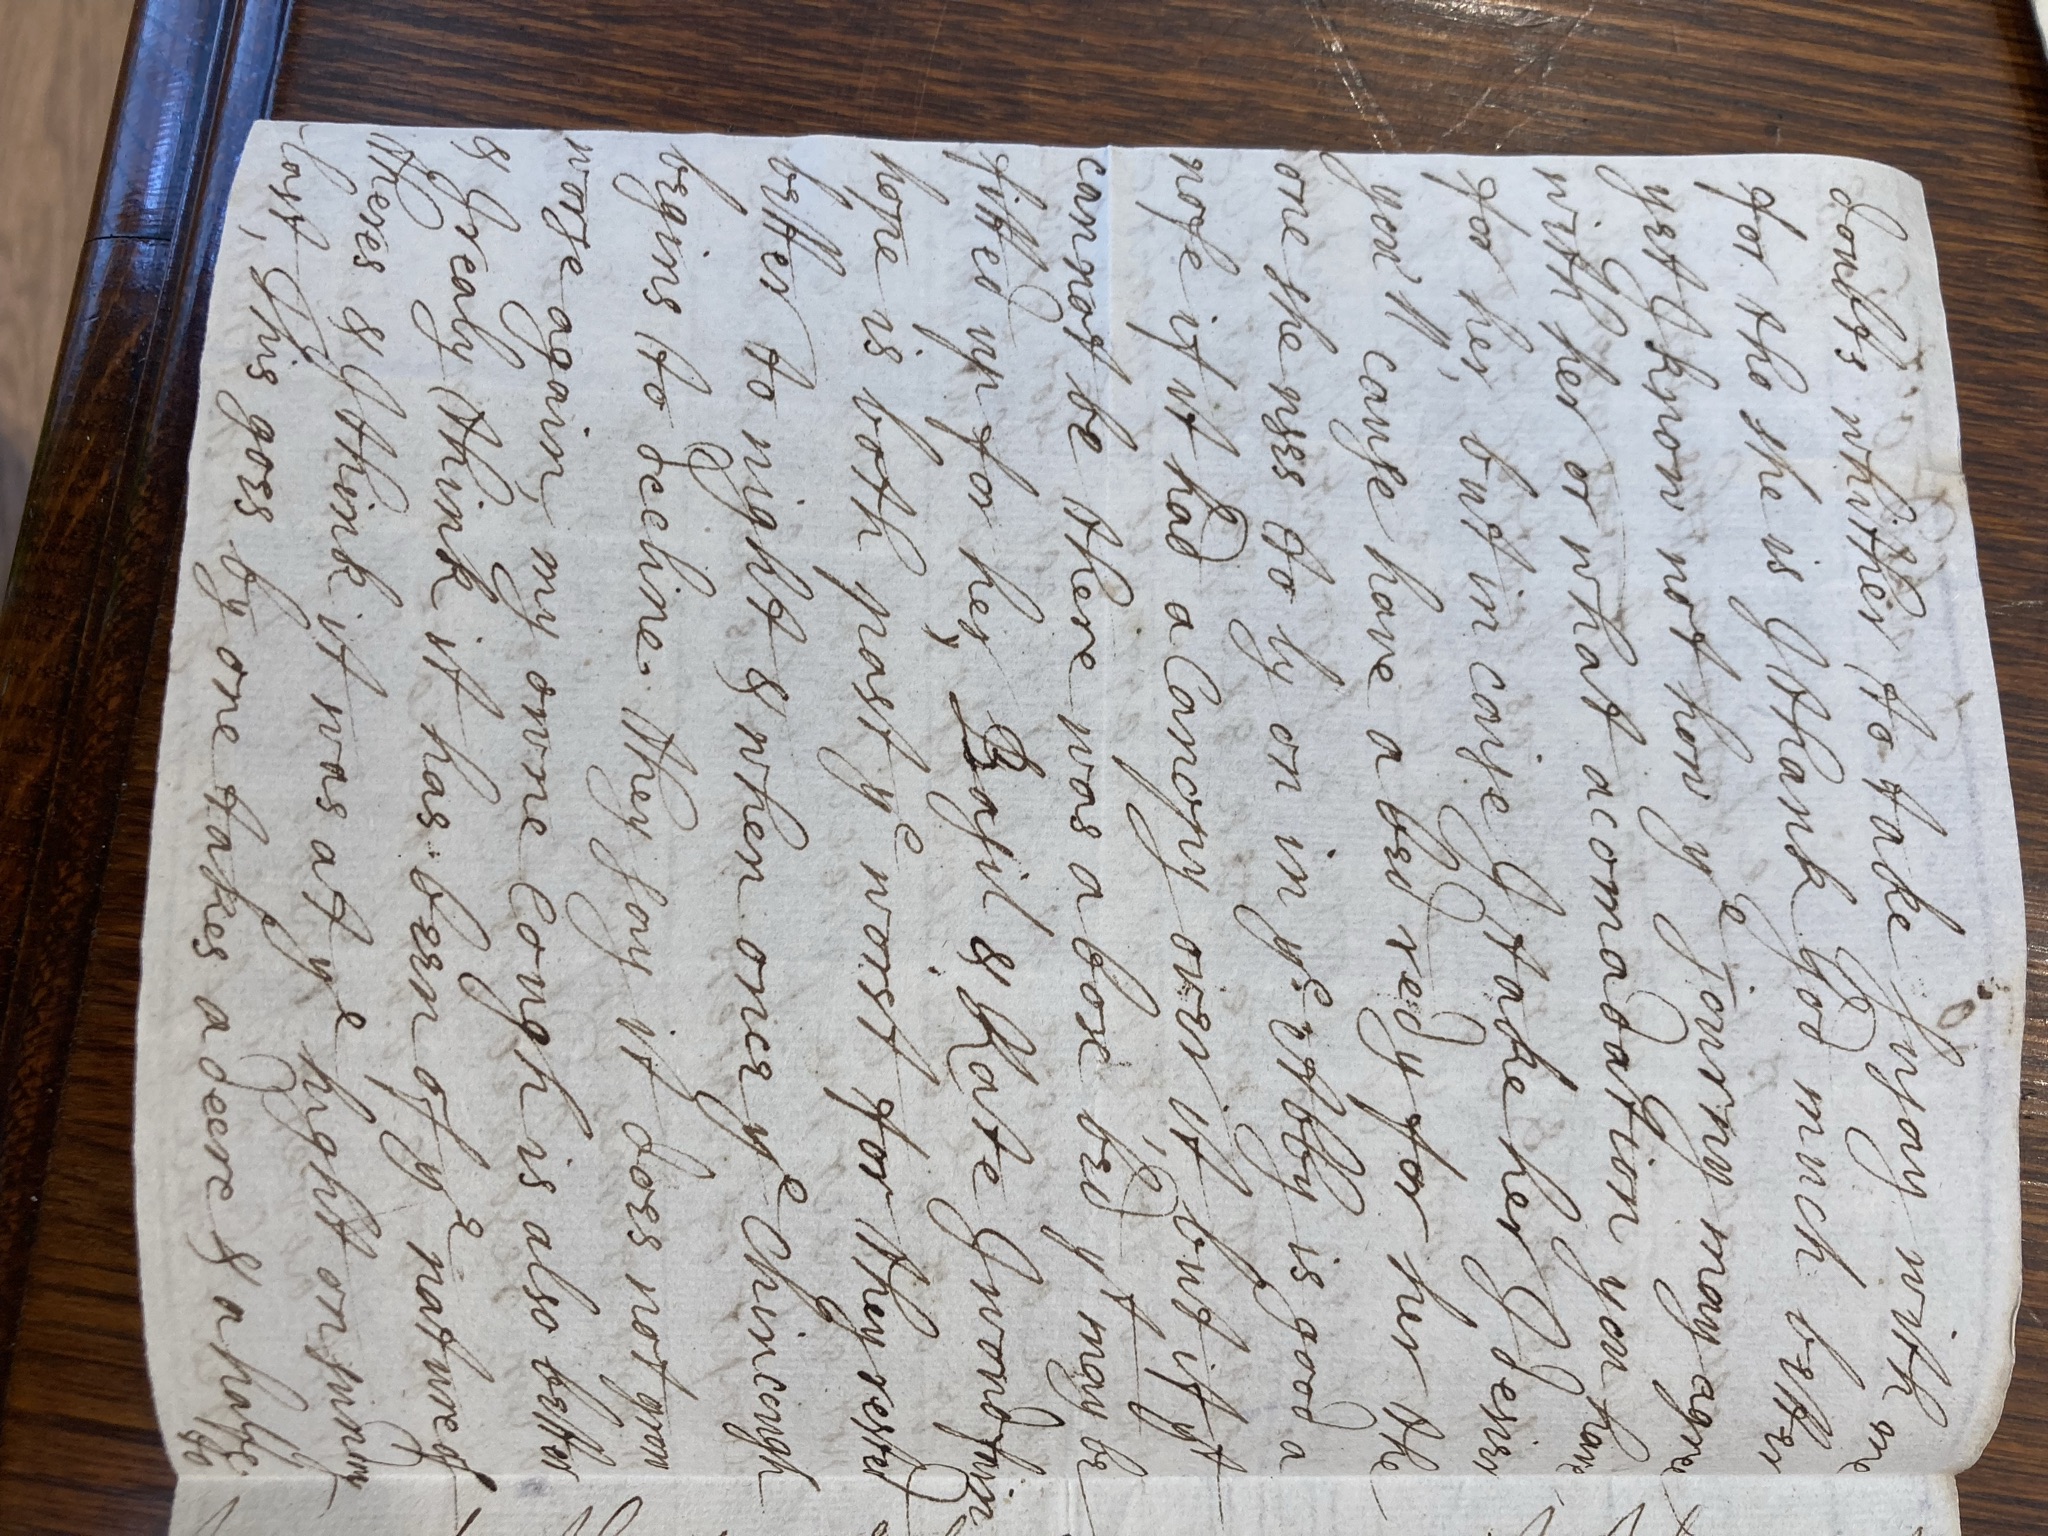 doubts whither to take Susay with me
for tho she is I thank God much better
yet I know not how yᵉ journy may agree
with her or what acomadation you have
for her, but in caise I take her I desier
you'll cause have a bed redy for her the
one she uses to ly on in yᵉ Abby is good a
nofe if it had a Canopy over it, but if yᵗ
cannot be there was a box bed yᵗ may be
fitted up for her, Basil & Kate I woud fain
hope is both past yᵉ worst for they rested
better to night & when once yᵉ Chincough
begins to decline they say it does not grow
worse again, my owne Cough is also better
& I realy think it has been of yᵉ nature of
theres & I think it was at yᵉ hight on sunday
last, This goes by one takes a deere & a halfe
to